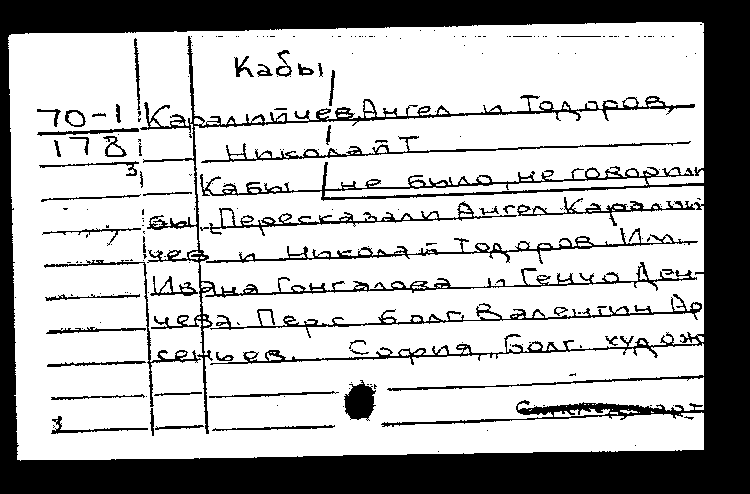 Кабы
70-1 Каралийчев, Ангел и Тодоров,
178 Николай Т
3
Кабы не было, не говорили
бы. Пересказали Ангел Каралий-
чев и Николай Тодоров. Илл.
Ивана Гонгалова и Генчо Ден-
чева. Пер. с болг. Валентин Ар
сеньев. София, „Болг. худож
3